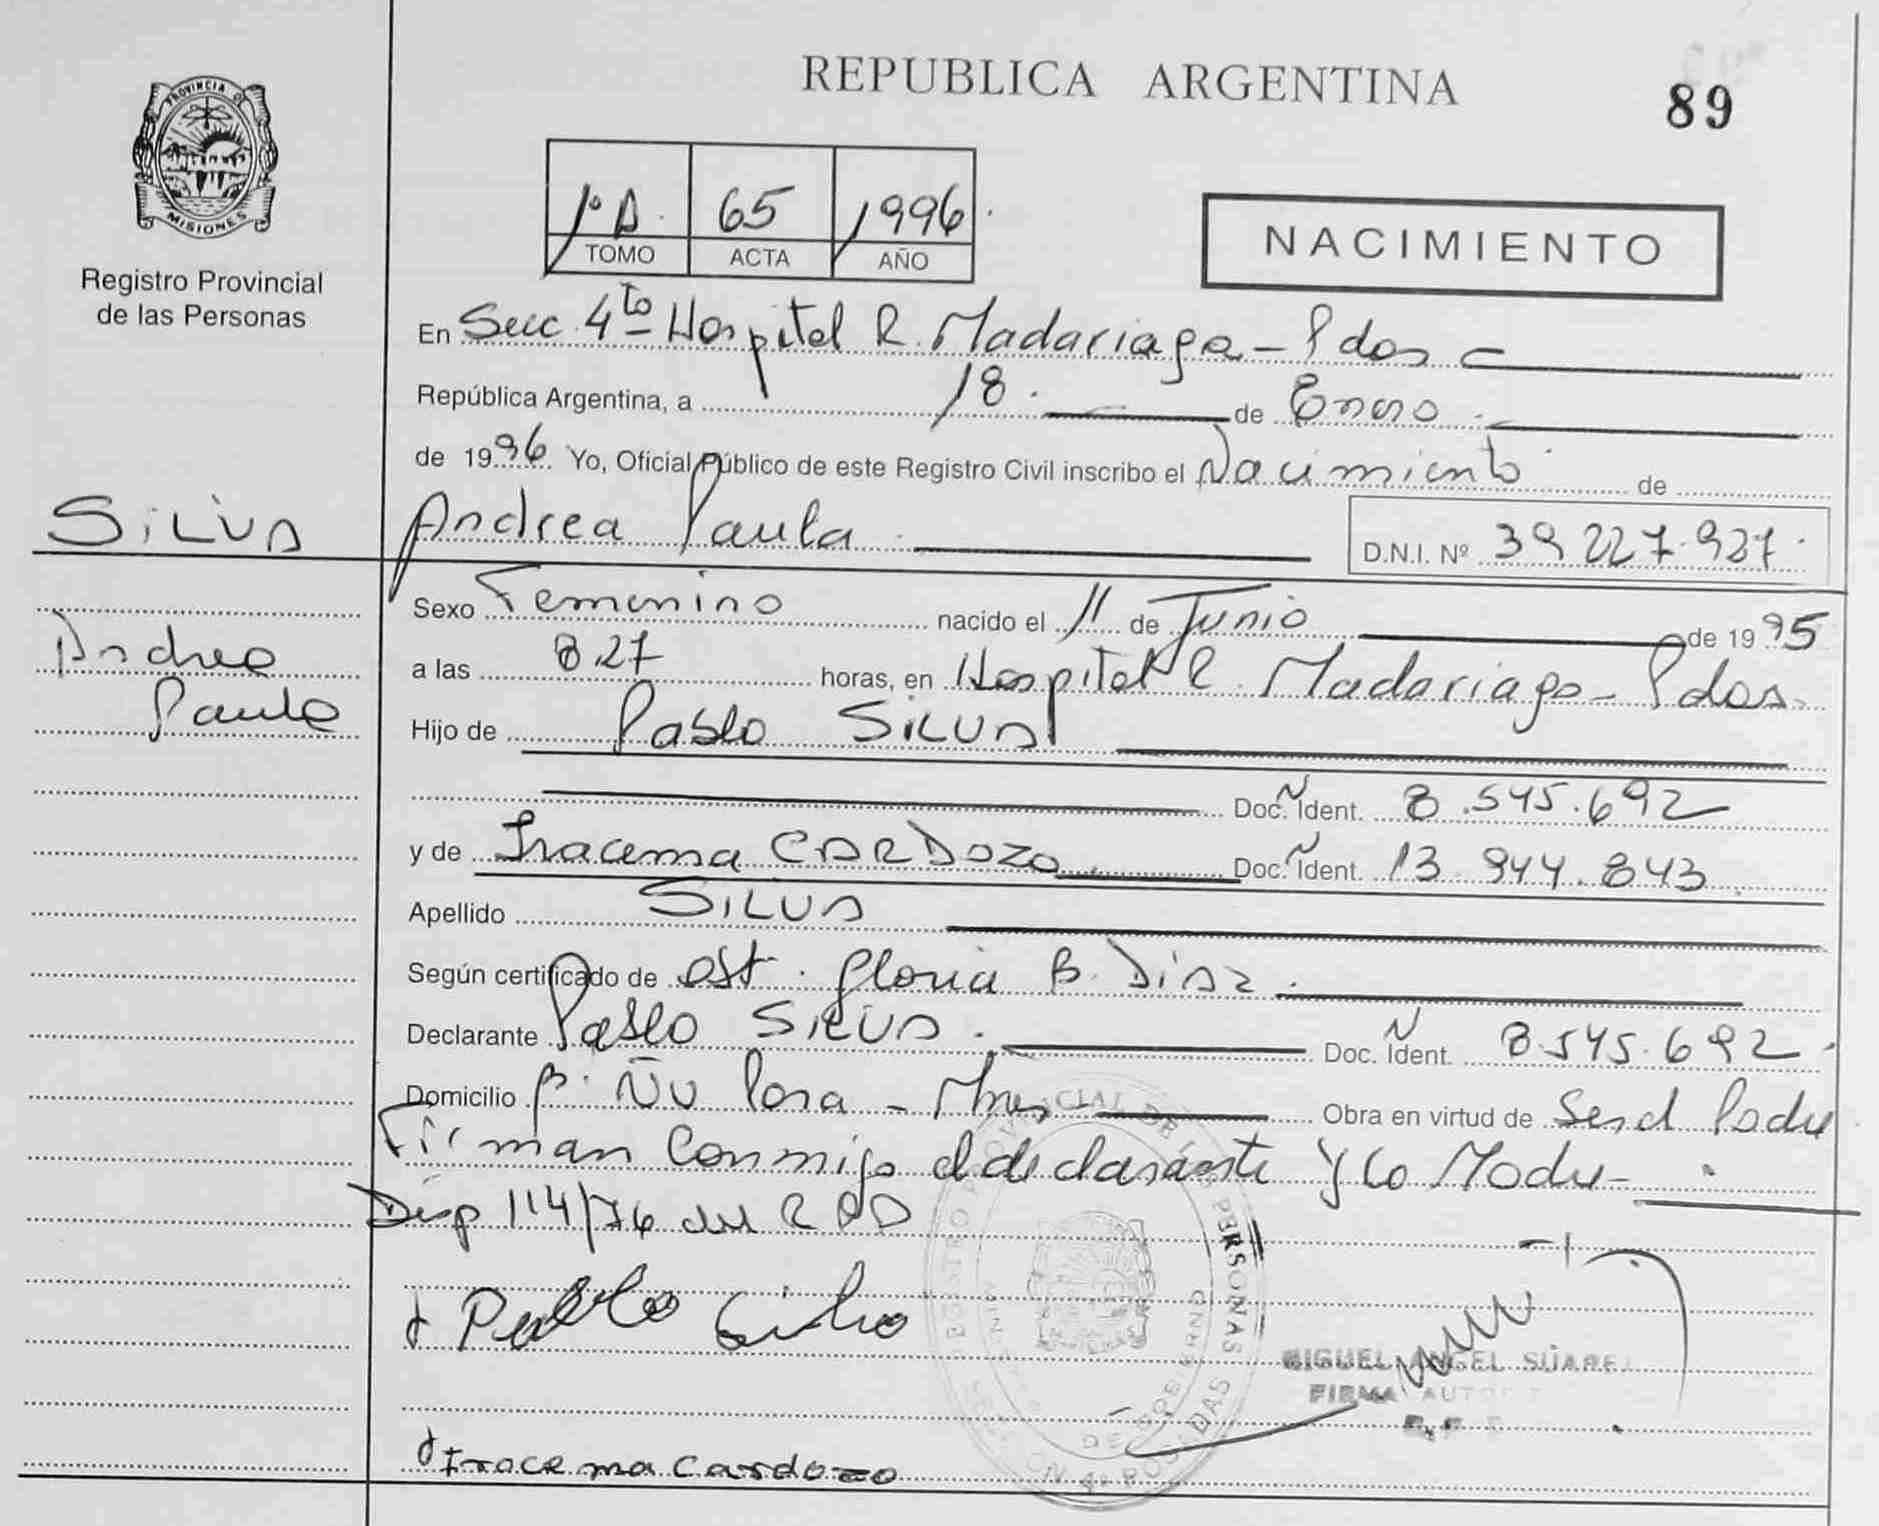 REPUBLICA ARGENTINA
89
PROVINCIA DE
MISIONES
Registro Provincial
de las Personas
1º A. 65 1996.
TOMO ACTA AÑO
NACIMIENTO
En Secc. 4to Hospital R. Madariaga - Pdas
República Argentina, a 18. de Enero.
de 1996 Yo, Oficial Público de este Registro Civil inscribo el Nacimiento de
SILVA Andrea Paula D.N.I. Nº 39 227.927
Sexo Femenino nacido el 11 de Junio de 1995
Andrea
a las 8,27 horas, en Hospital R. Madariaga - Pdas.
Paula
Hijo de Pablo SILVA
Doc. Ident. N 8.545.692
y de Iracema CARDOZO Doc. Ident. N 13.944.843
Apellido SILVA
Según certificado de Obst. Gloria B. Diaz.
Declarante Pablo SILVA. Doc. Ident. N 8.545.692.
Domicilio Bº. Ñu Pora - Mnes Obra en virtud de Ser el Padre
Firman Conmigo el declarante y la Madre
Disp 114/76 del RPP
Pablo Silva
MIGUEL ANGEL SUAREZ
FIRMA
Iracema Cardozo
REGISTRO PROVINCIAL DE LAS PERSONAS
DE GOBIERNO
SECCION 4º POSADAS